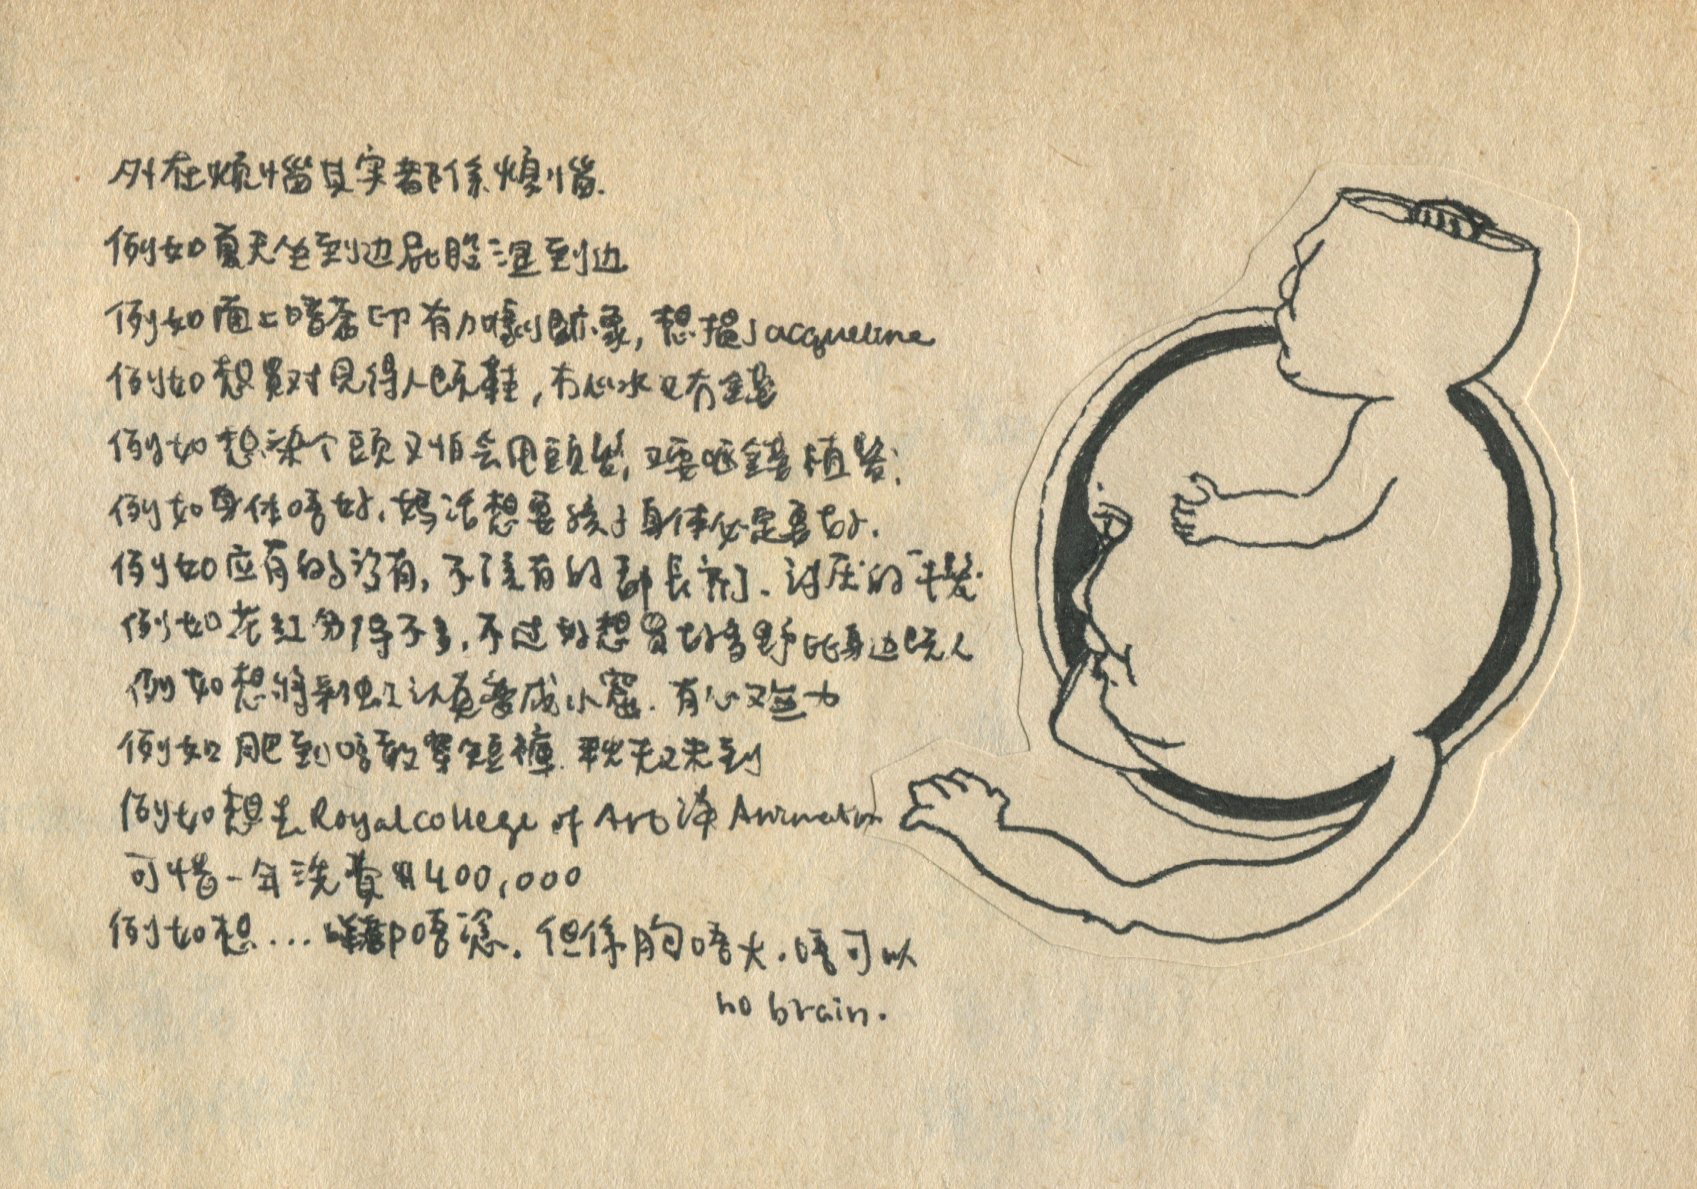 外在煩惱其实都係煩惱.
例如夏天坐到边屁股湿到边
例如面上暗瘡印有加劇跡象, 想搵Jacqueline
例如想買对見得人旣鞋, 冇心水又冇錢
例如想染个頭又怕会甩頭髮, 又要嘥錢植髮;
例如身体唔好, 媽活想要孩子身体必定要好.
例如应有的沒有, 不应有的都長齐了. 討厌的
例如花紅分得不多, 不过好想買好多野比身边旣人
例如想將彩虹认真畫成小窟. 有心又無力
例如肥到唔敢穿短褲. 熱天又未到
例如想去Royal college of Art 讀 Animation
可惜一年洗費 $400,000
例如想... 都唔諗. 但係胸唔大. 唔可以
no brain.